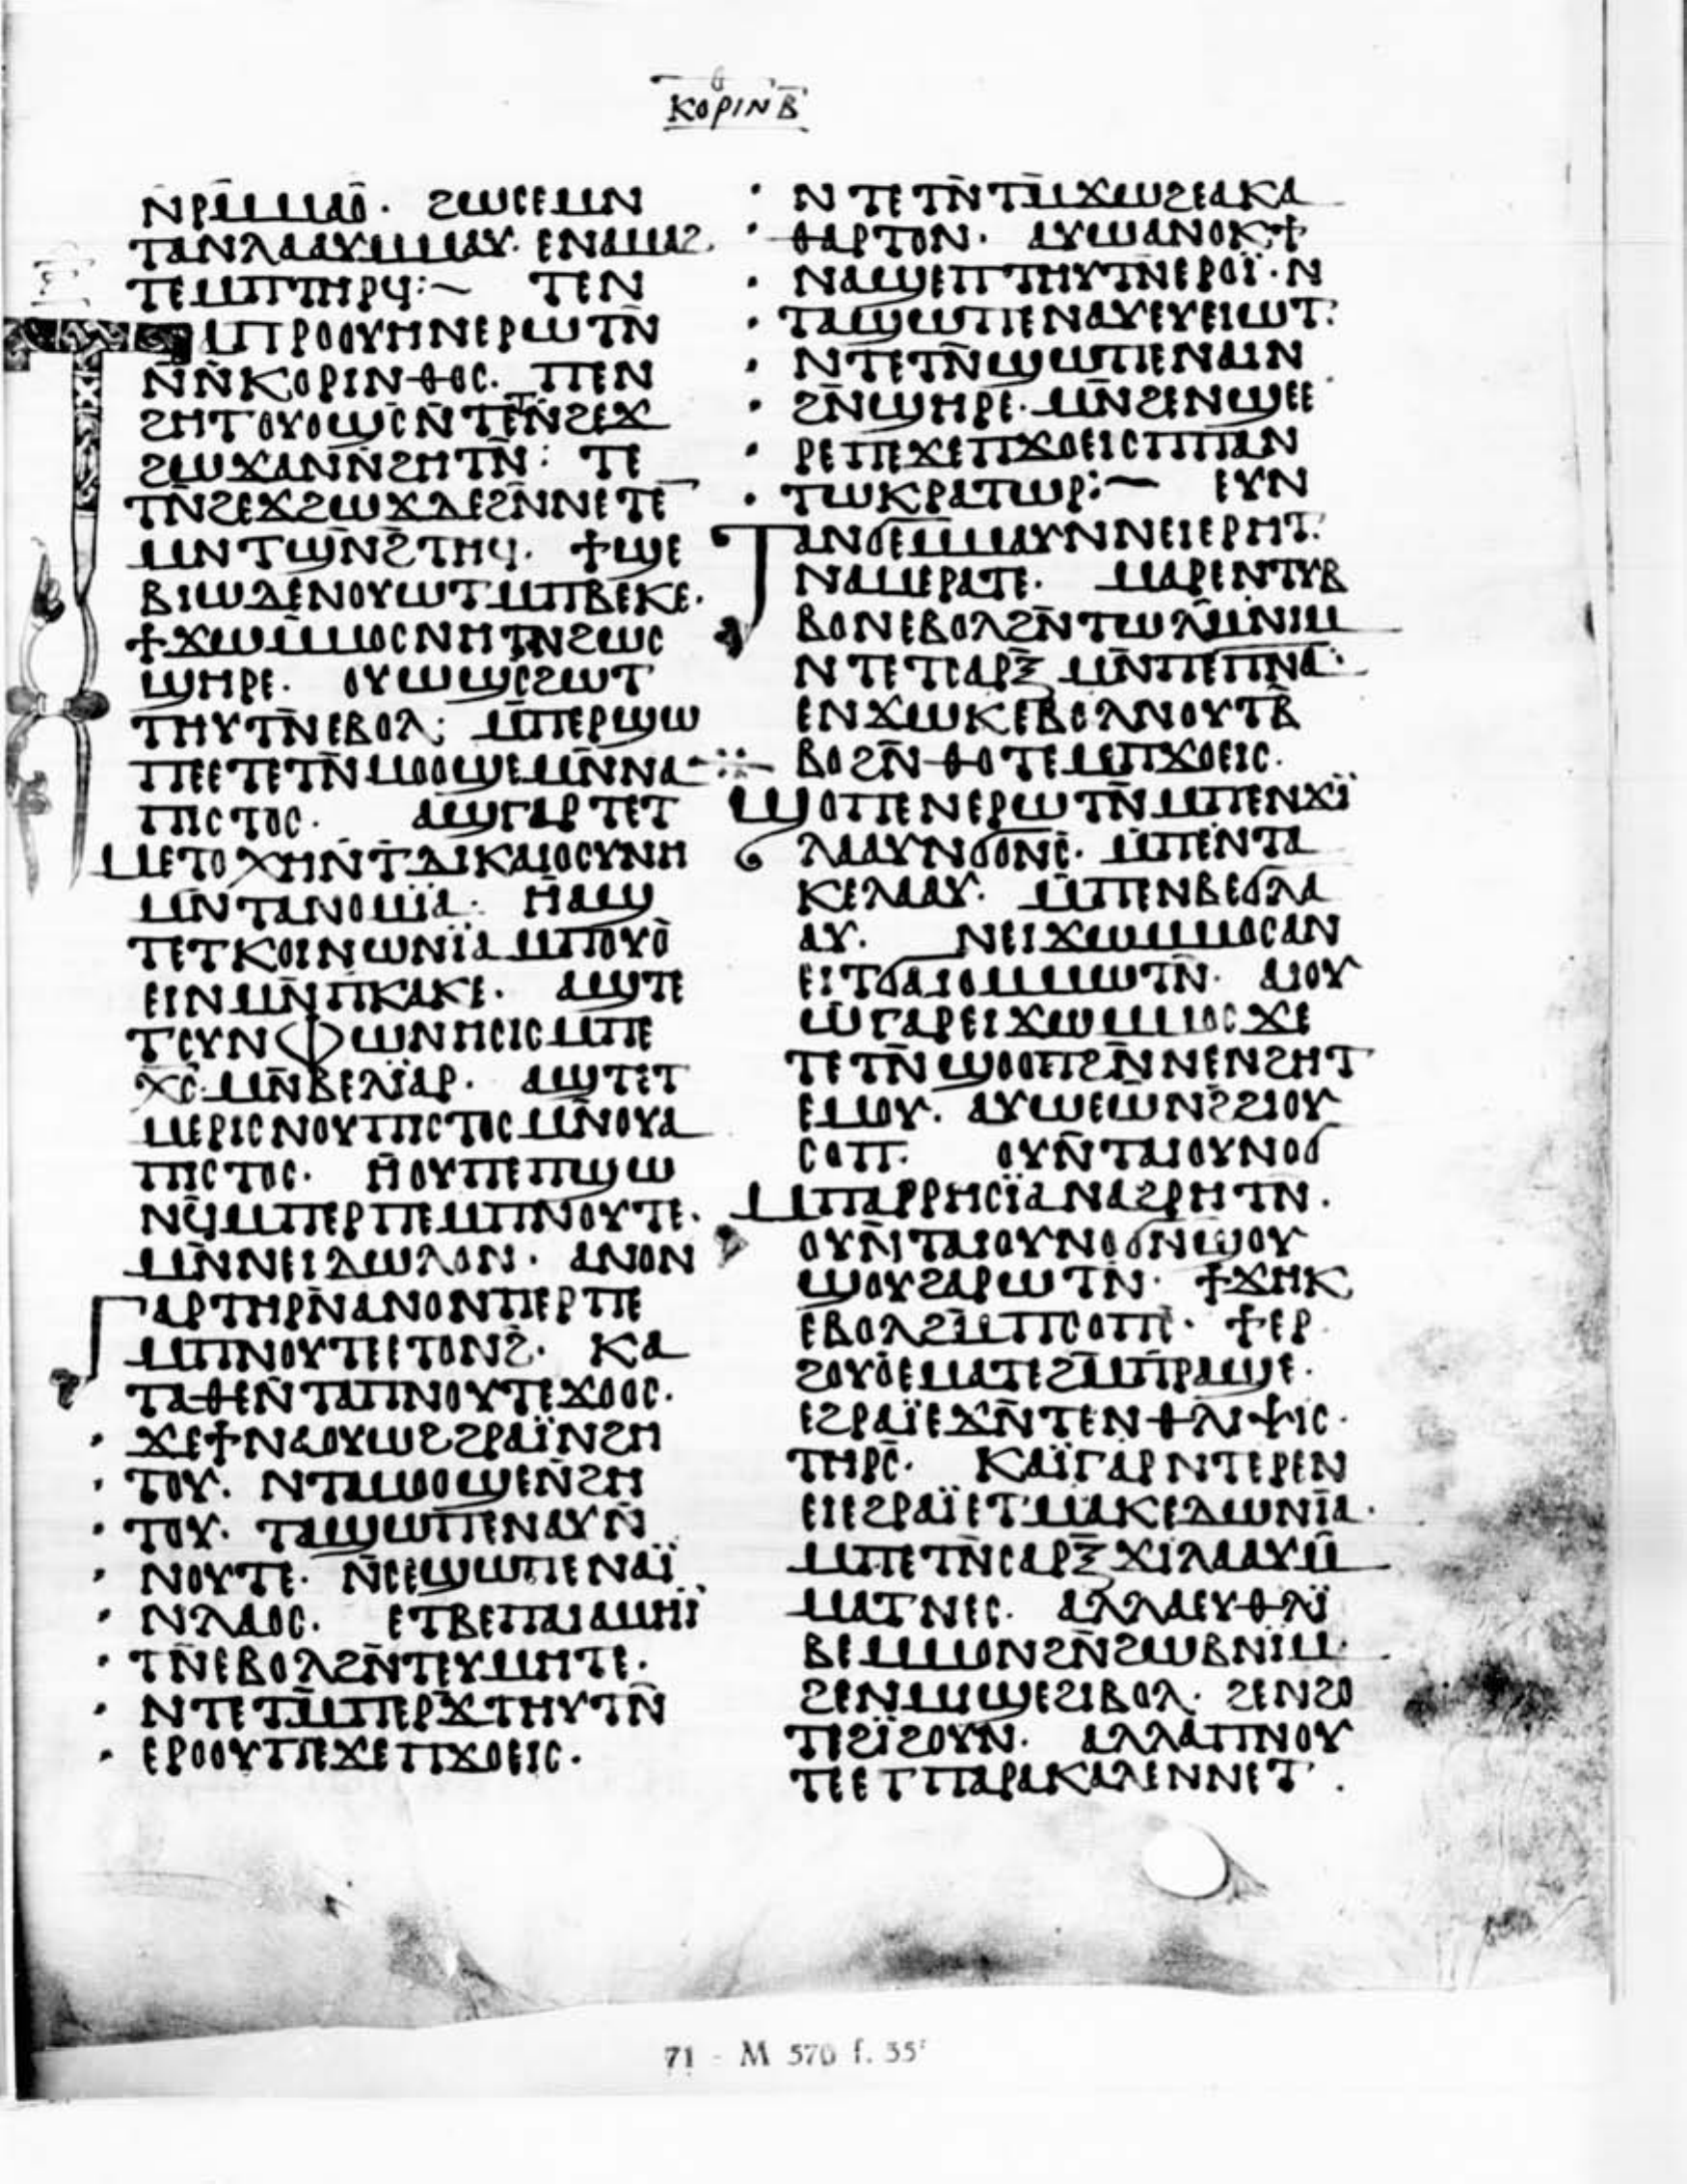 ⲕⲟⲣⲓⲛ ⲃ̄
ⲛ̄ⲣⲙ̄ⲙⲁⲟ̄· ϩⲱⲥⲉⲙⲛ
ⲧⲁⲛⲗⲁⲁⲩⲙ̄ⲙⲁⲩ· ⲉⲛⲁⲙⲁϩ
ⲧⲉⲙ̄ⲡⲧⲏⲣϥ:~ ⲧⲉⲛ
ⲧⲁⲡⲣⲟⲟⲩⲏⲛⲉⲣⲱⲧⲛ̄
ⲛ̄ⲛ̄ⲕⲟⲣⲓⲛⲑⲟⲥ· ⲡⲉⲛ
ϩⲏⲧⲟⲩⲟϣⲥ̄ⲛ̄ⲧⲉⲧⲛ̄ϩⲉϫ
ϩⲱϫⲁⲛⲛ̄ϩⲏⲧⲛ̄: ⲧⲉ
ⲧⲛ̄ϩⲉϫϩⲱϫⲇⲉϩⲛ̄ⲛⲉⲧⲉ
ⲙⲛⲧϣⲛ̄ϩ̄ⲧⲏϥ· ϯϣⲉ
ⲃⲓⲱⲇⲉⲛⲟⲩⲱⲧⲙ̄ⲡⲃⲉⲕⲉ·
ϯϫⲱⲙ̄ⲙⲟⲥⲛⲏⲧⲛ̄ϩⲱⲥ
ϣⲏⲣⲉ· ⲟⲩⲱϣⲥϩⲱⲧ
ⲧⲏⲩⲧⲛ̄ⲉⲃⲟⲗ: ⲙ̄ⲡⲉⲣϣⲱ
ⲡⲉⲉⲧⲉⲧⲛ̄ⲙⲟⲟϣⲉⲙⲛ̄ⲛⲁ
ⲡⲓⲥⲧⲟⲥ· ⲁϣⲅⲁⲣⲧⲉⲧ
ⲙⲉⲧⲟⲭⲏⲛ̄ⲧⲇⲓⲕⲁⲓⲟⲥⲩⲛⲏ
ⲙⲛ̄ⲧⲁⲛⲟⲙⲓ̈ⲁ· ⲏ̄ⲁϣ
ⲧⲉⲧⲕⲟⲓⲛⲱⲛⲓ̈ⲁⲙ̄ⲡⲟⲩⲟ̀
ⲉⲓⲛⲙⲛ̄ⲡⲕⲁⲕⲉ· ⲁϣⲧⲉ
ⲧⲥⲩⲛⲫⲱⲛⲏⲥⲓⲥⲙ̄ⲡⲉ
ⲭ̄ⲥ̄ⲙⲛ̄ⲃⲉⲗⲓ̈ⲁⲣ· ⲁϣⲧⲉⲧ
ⲙⲉⲣⲓⲥⲛⲟⲩⲡⲓⲥⲧⲟⲥⲙⲛ̄ⲟⲩⲁ
ⲡⲓⲥⲧⲟⲥ· ⲏ̄ⲟⲩⲡⲉⲡϣⲱ
ⲛϥ̄ⲙ̄ⲡⲉⲣⲡⲉⲙ̄ⲡⲛⲟⲩⲧⲉ·
ⲙⲛ̄ⲛⲉⲓⲇⲱⲗⲟⲛ· ⲁⲛⲟⲛ
ⲅⲁⲣⲧⲏⲣⲛ̄ⲁⲛⲟⲛⲡⲉⲣⲡⲉ
ⲙ̄ⲡⲛⲟⲩⲧⲉⲉⲧⲟⲛϩ̄· ⲕⲁ
ⲧⲁⲑⲉⲛ̄ⲧⲁⲡⲛⲟⲩⲧⲉϫⲟⲟⲥ·
ϫⲉϯⲛⲁⲟⲩⲱϩϩⲣⲁⲓ̈ⲛϩⲏ
ⲧⲟⲩ· ⲛⲧⲁⲙⲟⲟϣⲉⲛ̄ϩⲏ
ⲧⲟⲩ· ⲧⲁϣⲱⲡⲉⲛⲁⲩⲛ̄
ⲛⲟⲩⲧⲉ· ⲛ̄ⲥⲉϣⲱⲡⲉⲛⲁⲓ̈
ⲛⲗⲁⲟⲥ· ⲉⲧⲃⲉⲡⲁⲓⲁⲙⲏⲓ̈
ⲧⲛ̄ⲉⲃⲟⲗϩⲛ̄ⲧⲉⲩⲙⲏⲧⲉ·
ⲛⲧⲉⲧⲙ̄ⲡⲉⲣϫⲧⲏⲩⲧⲛ̄
ⲉⲣⲟⲟⲩⲡⲉϫⲉⲡϫⲟⲉⲓⲥ·
ⲛⲧⲉⲧⲛ̄ⲧⲙ̄ϫⲱϩⲉⲁⲕⲁ
ⲑⲁⲣⲧⲟⲛ· ⲁⲩⲱⲁⲛⲟⲕϯ
ⲛⲁϣⲉⲡⲧⲏⲩⲧⲛ̄ⲉⲣⲟⲓ̈·ⲛ
ⲧⲁϣⲱⲡⲉⲛⲁⲩⲉⲩⲉⲓⲱⲧ:
ⲛⲧⲉⲧⲛ̄ϣⲱⲡⲉⲛⲁⲓⲛ
ϩⲛ̄ϣⲏⲣⲉ· ⲙⲛ̄ϩⲉⲛϣⲉⲉ
ⲣⲉⲡⲉϫⲉⲡϫⲟⲉⲓⲥⲡⲡⲁⲛ
ⲧⲱⲕⲣⲁⲧⲱⲣ:~ ⲉⲩⲛ
ⲧⲁⲛϭⲉⲙ̄ⲙⲁⲩⲛⲛⲉⲓⲉⲣⲏⲧ:
ⲛⲁⲙⲉⲣⲁⲧⲉ· ⲙⲁⲣⲉⲛⲧⲩⲃ
ⲃⲟⲛⲉⲃⲟⲗϩⲛ̄ⲧⲱⲗⲙ̄ⲛⲓⲙ
ⲛⲧⲉⲧⲥⲁⲣⲝ̄ⲙⲛ̄ⲡⲉⲡ̄ⲛ̄ⲁ̄:
ⲉⲛϫⲱⲕⲉⲃⲟⲗⲛⲟⲩⲧⲃ̄
ⲃⲟϩⲛ̄ⲑⲟⲧⲉⲙ̄ⲡϫⲟⲉⲓⲥ·
ϣⲟⲡⲛⲉⲣⲱⲧⲛ̄ⲙ̄ⲡⲉⲛϫⲓ̈
ⲗⲁⲁⲩⲛϭⲟⲛⲥ̄· ⲙ̄ⲡⲉⲛⲧⲁ
ⲕⲉⲗⲁⲁⲩ· ⲙ̄ⲡⲉⲛⲃⲉϭⲗⲁ
ⲁⲩ· ⲛⲉⲓϫⲱⲙ̄ⲙⲟⲥⲁⲛ
ⲉⲓⲧϭⲁⲓⲟⲙ̄ⲙⲱⲧⲛ̄· ⲁⲓⲟⲩ
ⲱⲅⲁⲣⲉⲓϫⲱⲙ̄ⲙⲟⲥϫⲉ
ⲧⲉⲧⲛ̄ϣⲟⲟⲡϩⲛ̄ⲛⲉⲛϩⲏⲧ
ⲉⲙⲟⲩ· ⲁⲩⲱⲉⲱⲛϩ̄ϩⲓⲟⲩ
ⲥⲟⲡ· ⲟⲩⲛ̄ⲧⲁⲓⲟⲩⲛⲟϭ
ⲙ̄ⲡⲁⲣⲣⲏⲥⲓ̈ⲁⲛⲁϩⲣⲏⲧⲛ·
ⲟⲩⲛ̄ⲧⲁⲓⲟⲩⲛⲟϭⲛ̄ϣⲟⲩ
ϣⲟⲩϩⲁⲣⲱⲧⲛ̄· ϯϫⲏⲕ
ⲉⲃⲟⲗϩⲙ̄ⲡⲥⲟⲡⲥ̄· ϯⲉⲣ
ϩⲟⲩⲟ̀ⲉⲙⲁⲧⲉϩⲙ̄ⲡⲣⲁϣⲉ·
ⲉϩⲣⲁⲓ̈ⲉϫⲛ̄ⲧⲉⲛⲑⲗⲓⲯⲓⲥ·
ⲧⲏⲣⲥ̄· ⲕⲁⲓ̈ⲅⲁⲣⲛⲧⲉⲣⲉⲛ
ⲉⲓⲉϩⲣⲁⲓ̈ⲉⲧⲙⲁⲕⲉⲇⲱⲛⲓ̈ⲁ·
ⲙ̄ⲡⲉⲧⲛ̄ⲥⲁⲣⲝ̄ϫⲓⲗⲁⲁⲩⲙ̄
ⲙⲁⲧⲛⲉⲥ· ⲁⲗⲗⲁⲉⲩⲑⲗⲓ̈
ⲃⲉⲙ̄ⲙⲟⲛϩⲛ̄ϩⲱⲃⲛⲓⲙ·
ϩⲉⲛⲙⲓϣⲉϩⲓⲃⲟⲗ· ϩⲉⲛϩⲟ
ⲧⲉϩⲓ̈ϩⲟⲩⲛ· ⲁⲗⲗⲁⲡⲛⲟⲩ
ⲧⲉⲉⲧⲡⲁⲣⲁⲕⲁⲗⲉⲛⲛⲉⲧ·
71 - M 570 f. 35ʳ